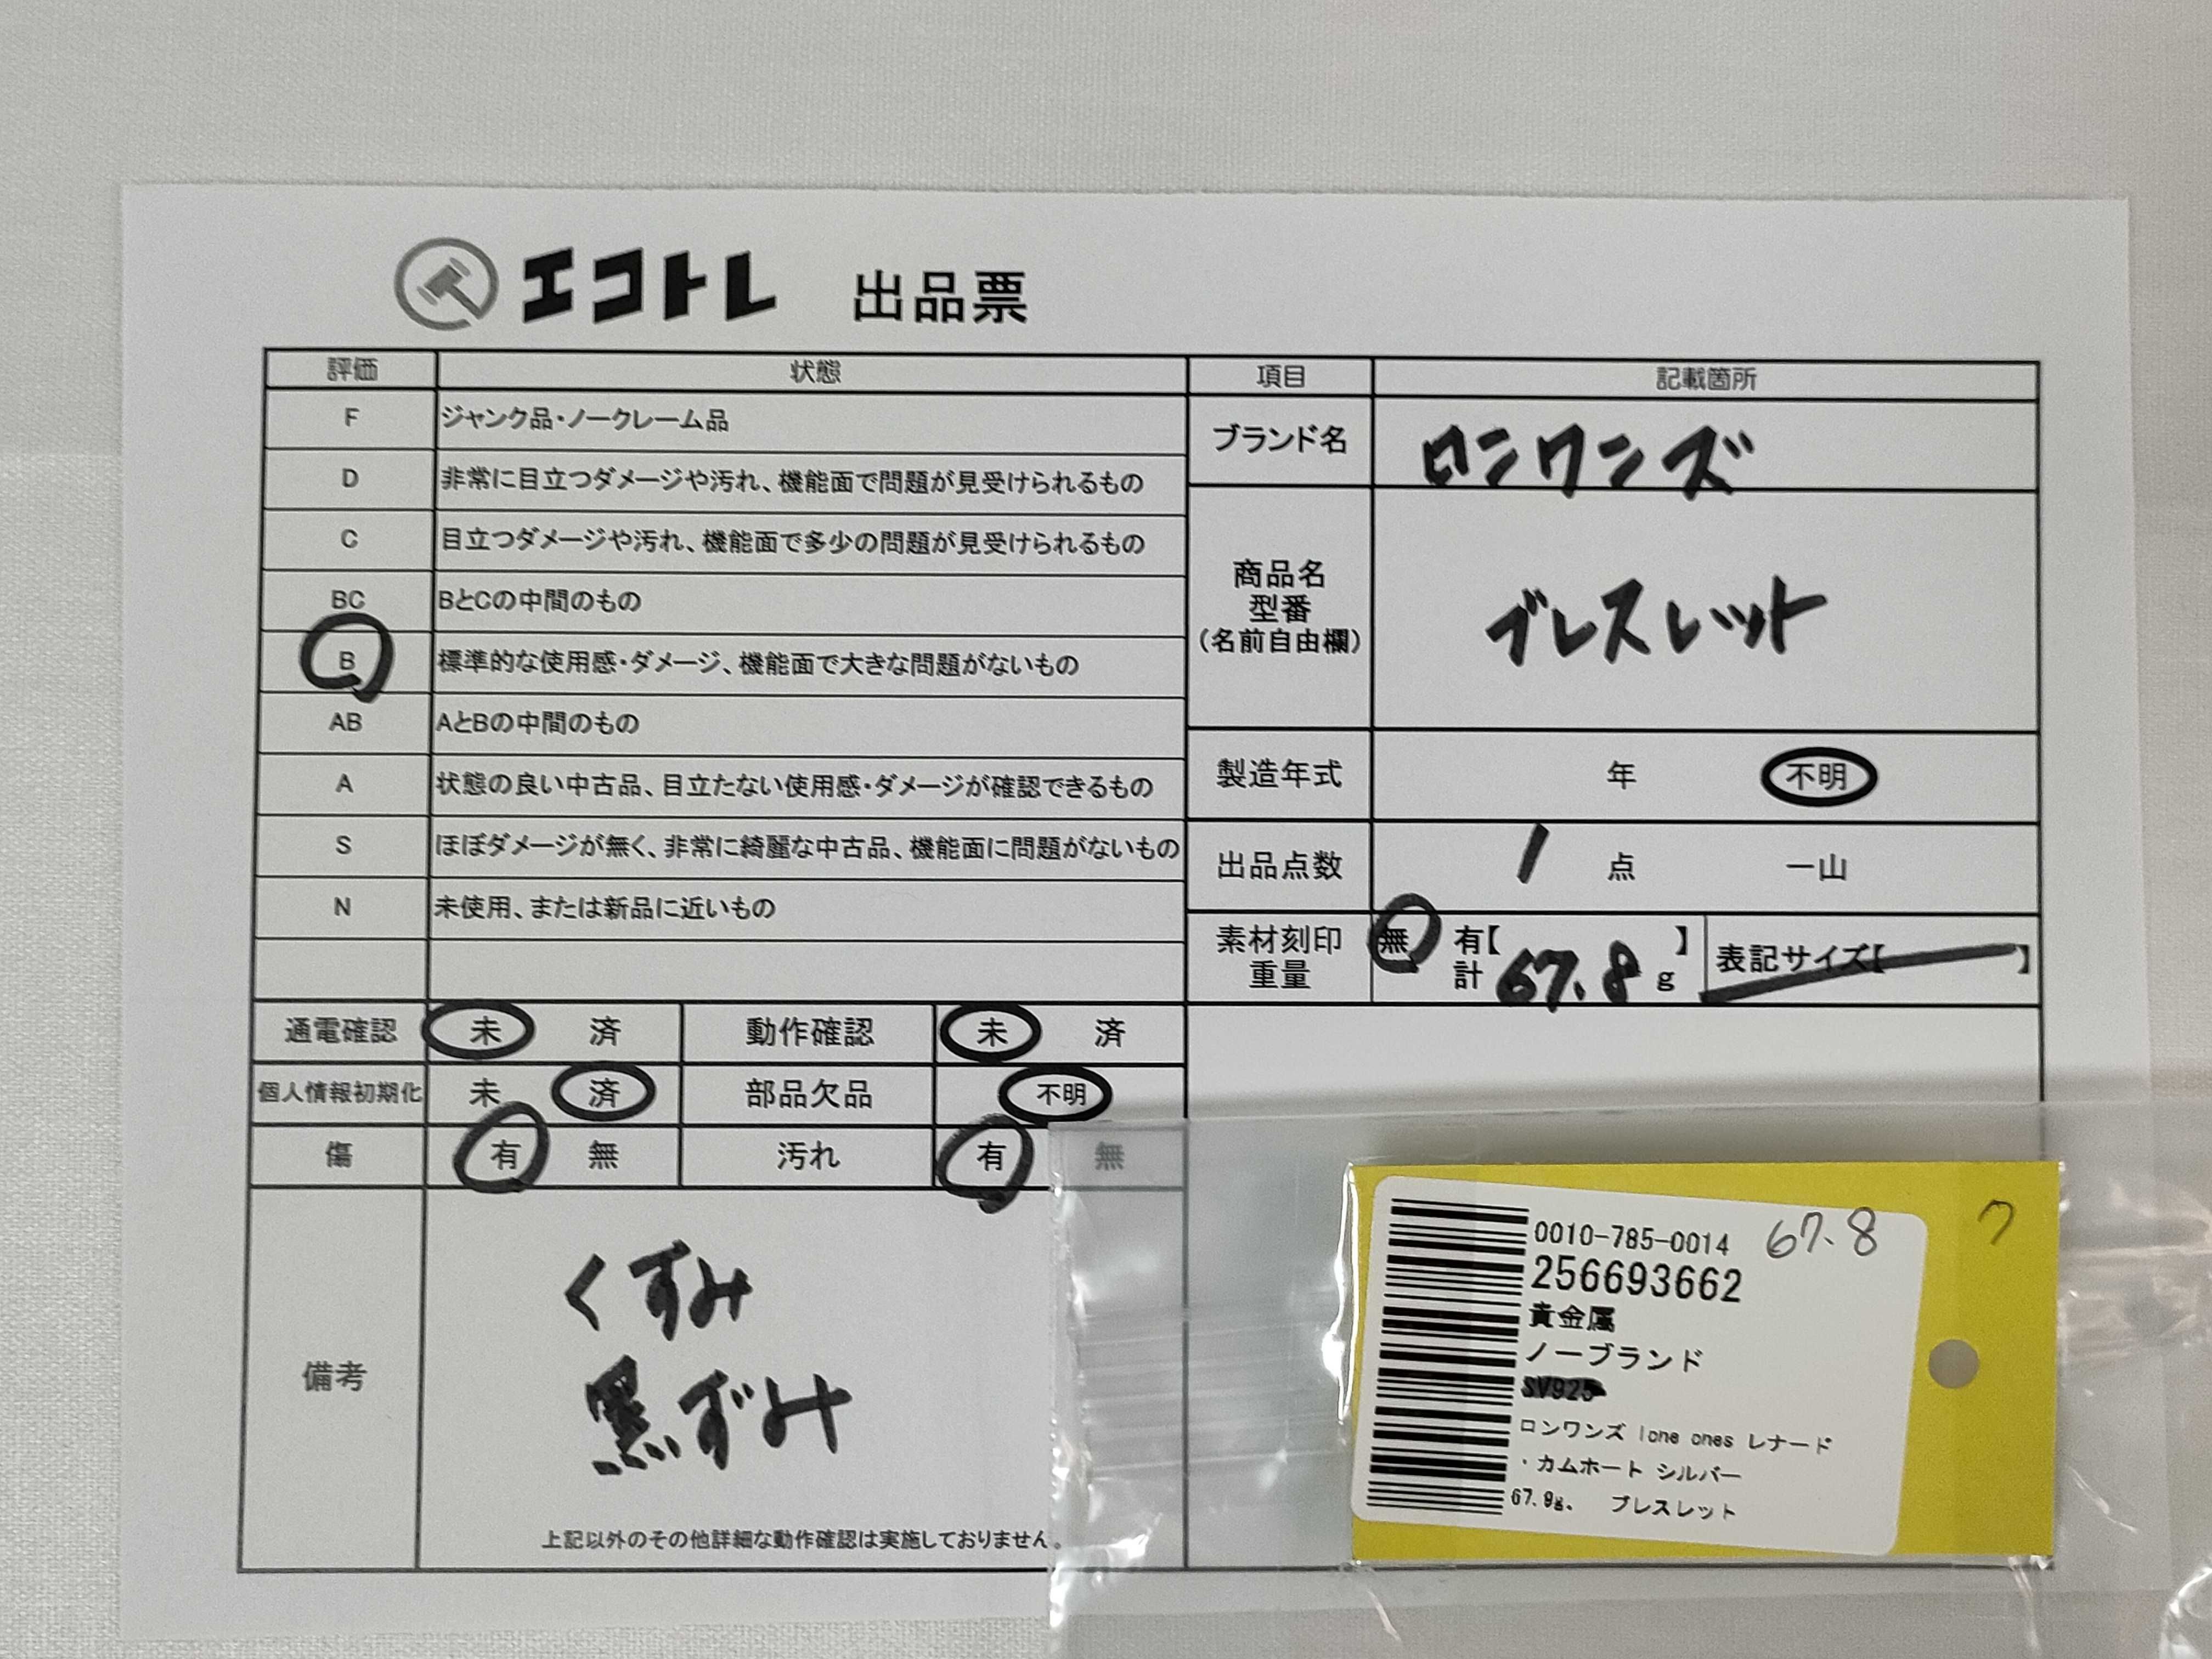 エコトレ 出品票
評価 状態 項目 記載箇所
F ジャンク品・ノークレーム品
D 非常に目立つダメージや汚れ、機能面で問題が見受けられるもの
C 目立つダメージや汚れ、機能面で多少の問題が見受けられるもの
BC BとCの中間のもの
B 標準的な使用感・ダメージ、機能面で大きな問題がないもの
AB AとBの中間のもの
A 状態の良い中古品、目立たない使用感・ダメージが確認できるもの
S ほぼダメージが無く、非常に綺麗な中古品、機能面に問題がないもの
N 未使用、または新品に近いもの
ブランド名 ロンワンズ
商品名
型番
(名前自由欄)
ブレスレット
製造年式 年 不明
出品点数 1 点 一山
素材刻印 無 有【 】
重量 計 67.8 g 表記サイズ【 】
通電確認 未 済 動作確認 未 済
個人情報初期化 未 済 部品欠品 不明
傷 有 無 汚れ 有 無
備考
くすみ
黒ずみ
上記以外のその他詳細な動作確認は実施しておりません。
0010-785-0014 67.8 ワ
256693662
貴金属
ノーブランド
SV925
ロンワンズ lone ones レナード
・カムホート シルバー
67.9g. ブレスレット